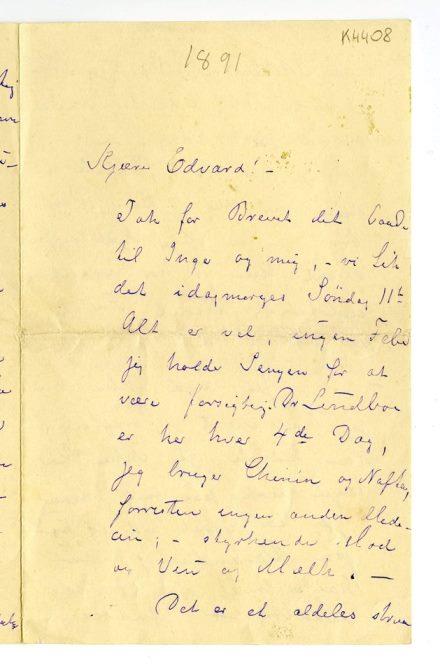 K4408
1891
Kjære Edvard! -
Tak for Brevet dit baade
til Inger og mig, - vi fik
det idagmorges Søndag 11te
Alt er vel, ingen Feber
jeg holder Sengen for at
være forsigtig. Dr
er her hver 4de Dag,
jeg bruger Chinin og Nafta,
forresten ingen anden Mede-
cin, - styrkende Mad
og Vin og Melk. -
Det er et aldeles